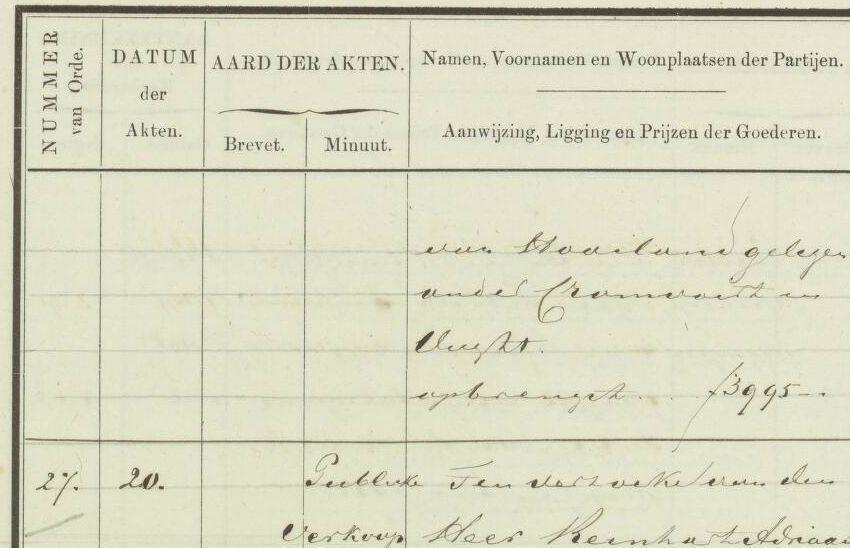 NUMMER van Orde.
DATUM der Akten.
AARD DER AKTEN.
Brevet.
Minuut.
Namen, Voornamen en Woonplaatsen der Partijen.
Aanwijzing, Ligging en Prijzen der Goederen.
van Hooiland gelegen
onder Cromvoirt en
Vught.
opbrengst . . . f 3995 -.
27. 20. Publieke Ten verzoeke van den
verkoop Heer Reinhart Adriaan